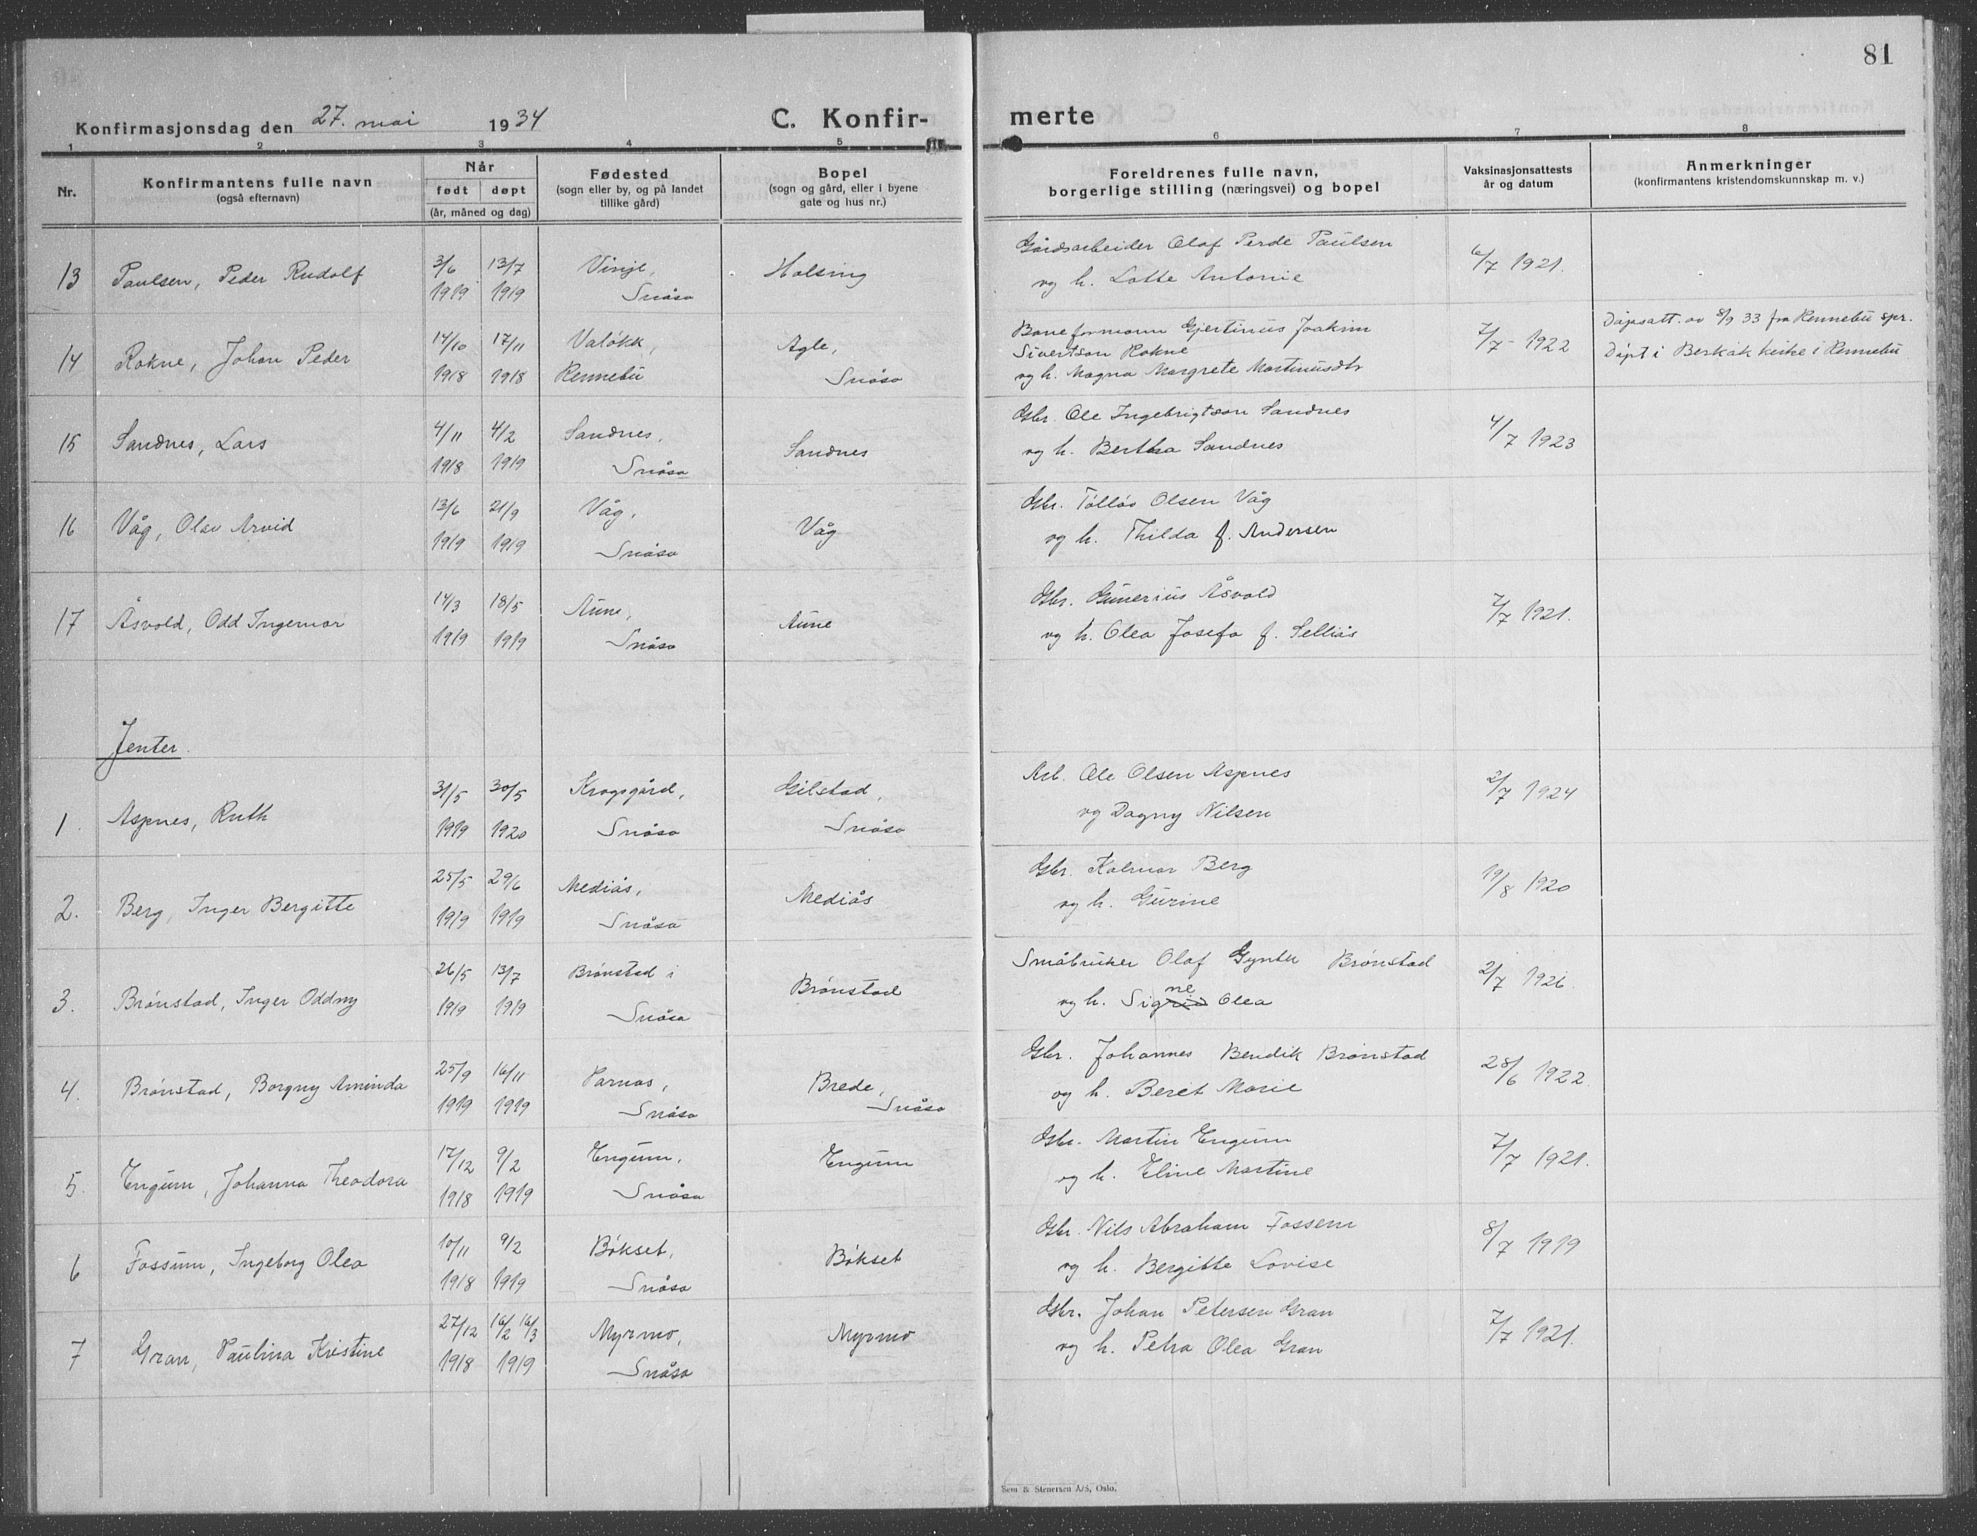 81
Konfirmasjonsdag den 27. mai 1934
C. Konfir-
merte
1 2 3 4 5 6 7 8
Nr.
Konfirmantens fulle navn
(også efternavn)
Når
født døpt
(år, måned og dag)
Fødested
(sogn eller by, og på landet
tillike gård)
Bopel
(sogn og gård, eller i byene
gate og hus nr.)
Foreldrenes fulle navn,
borgerlige stilling (næringsvei) og bopel
Vaksinasjonsattests
år og datum
Anmerkninger
(konfirmantens kristendomskunnskap m. v.)
13 Paulsen, Peder Rudolf
3/6 1919
13/7 1919
Vinje,
Snåsa
Holsing
Gårdsarbeider Olaf Perde Paulsen
og h. Lotte Antonie
6/7 1921.
14 Rokne, Johan Peder
14/10 1918
17/11 1918
Valökk,
Rennebu
Agle,
Snåsa
Baneformann Gjertinus Joakim
Sivertson Rokne
og h. Magna Margrete Martinusdtr
7/7 1922
Dåpsatt. av 8/9 33 fra Rennebu spr.
Döpt i Berkåk kirke i Rennebu
15 Sandnes, Lars
4/11 1918
4/2 1919
Sandnes,
Snåsa
Sandnes
Gbr. Ole Ingebrigtson Sandnes
og h. Bertha Sandnes
4/7 1923
16 Våg, Olav Arvid
13/6 1919
21/9 1919
Våg,
Snåsa
Våg
Gbr. Tölløv Olsen Våg
og h. Thilda f. Andersen
17 Åsvold, Odd Ingemar
14/3 1919
18/5 1919
Aune,
Snåsa
Aune
Gbr. Gunerius Åsvold
og h. Olea Josefa f. Selliås
7/7 1921.
Jenter.
1. Aspnes, Ruth
31/5 1919
30/5 1920
Krogsgård,
Snåsa
Gilstad,
Snåsa
Arb. Ole Olsen Aspnes
og Dagny Nilsen
2/7 1924
2. Berg, Inger Bergitte
25/5 1919
29/6 1919
Mediås,
Snåsa
Mediås
Gbr. Kalmar Berg
og h. Gurine
19/8 1920
3. Brønstad, Inger Oddny
26/5 1919
13/7 1919
Brønstad i
Snåsa
Brønstad
Småbruker Olaf Gynter Brønstad
og h. Signe Olea
2/7 1926
4. Brønstad, Borgny Aminda
25/9 1919
16/11 1919
Parnas,
Snåsa
Brede,
Snåsa
Gbr. Johannes Bendik Brønstad
og h. Beret Marie
28/6 1922.
5. Engum, Johanna Theodora
17/12 1918
9/2 1919
Engum,
Snåsa
Engum
Gbr. Martin Engum
og h. Eline Martine
7/7 1921.
6 Fossum, Ingeborg Olea
10/11 1918
9/2 1919
Bökset,
Snåsa
Bökset
Gbr. Nils Abraham Fossem
og h. Bergitte Lovise
8/7 1919
7 Gran, Paulina Kristine
27/12 1918
16/2 16/3 1919
Myrmo,
Snåsa
Myrmo
Gbr. Johan Petersen Gran
og h. Petra Olea Gran
7/7 1921.
Sem & Stenersen A/S, Oslo.